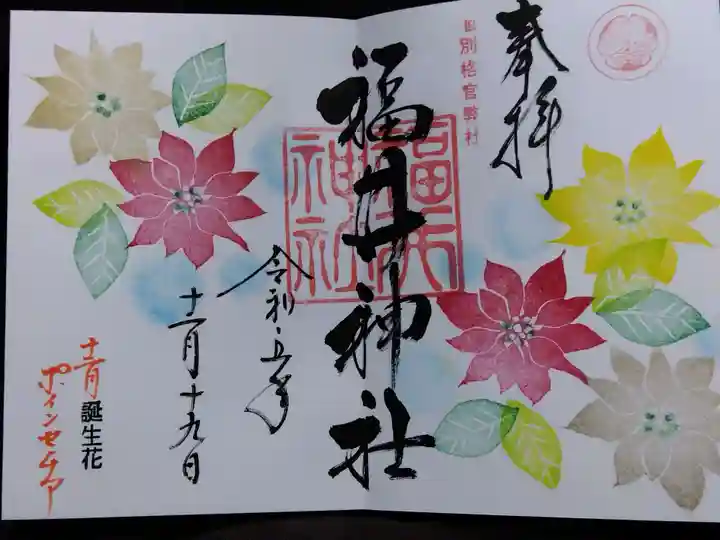 奉拝
旧別格官幣社
福井神社
福井神社
令和五年
十二月十九日
十二月誕生花
ポインセチア